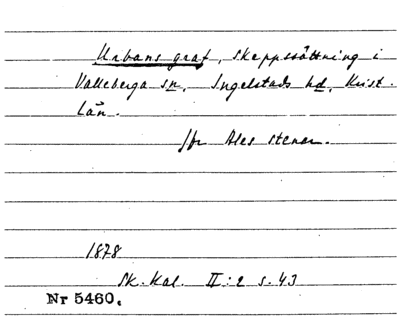 Urbans graf, skeppssättning i
Valleberga sn, Ingelstads hd, Krist.
län.
Jfr Ales stenar.
1878
Sk. Kal. II:2 s. 43
Nr 5460.